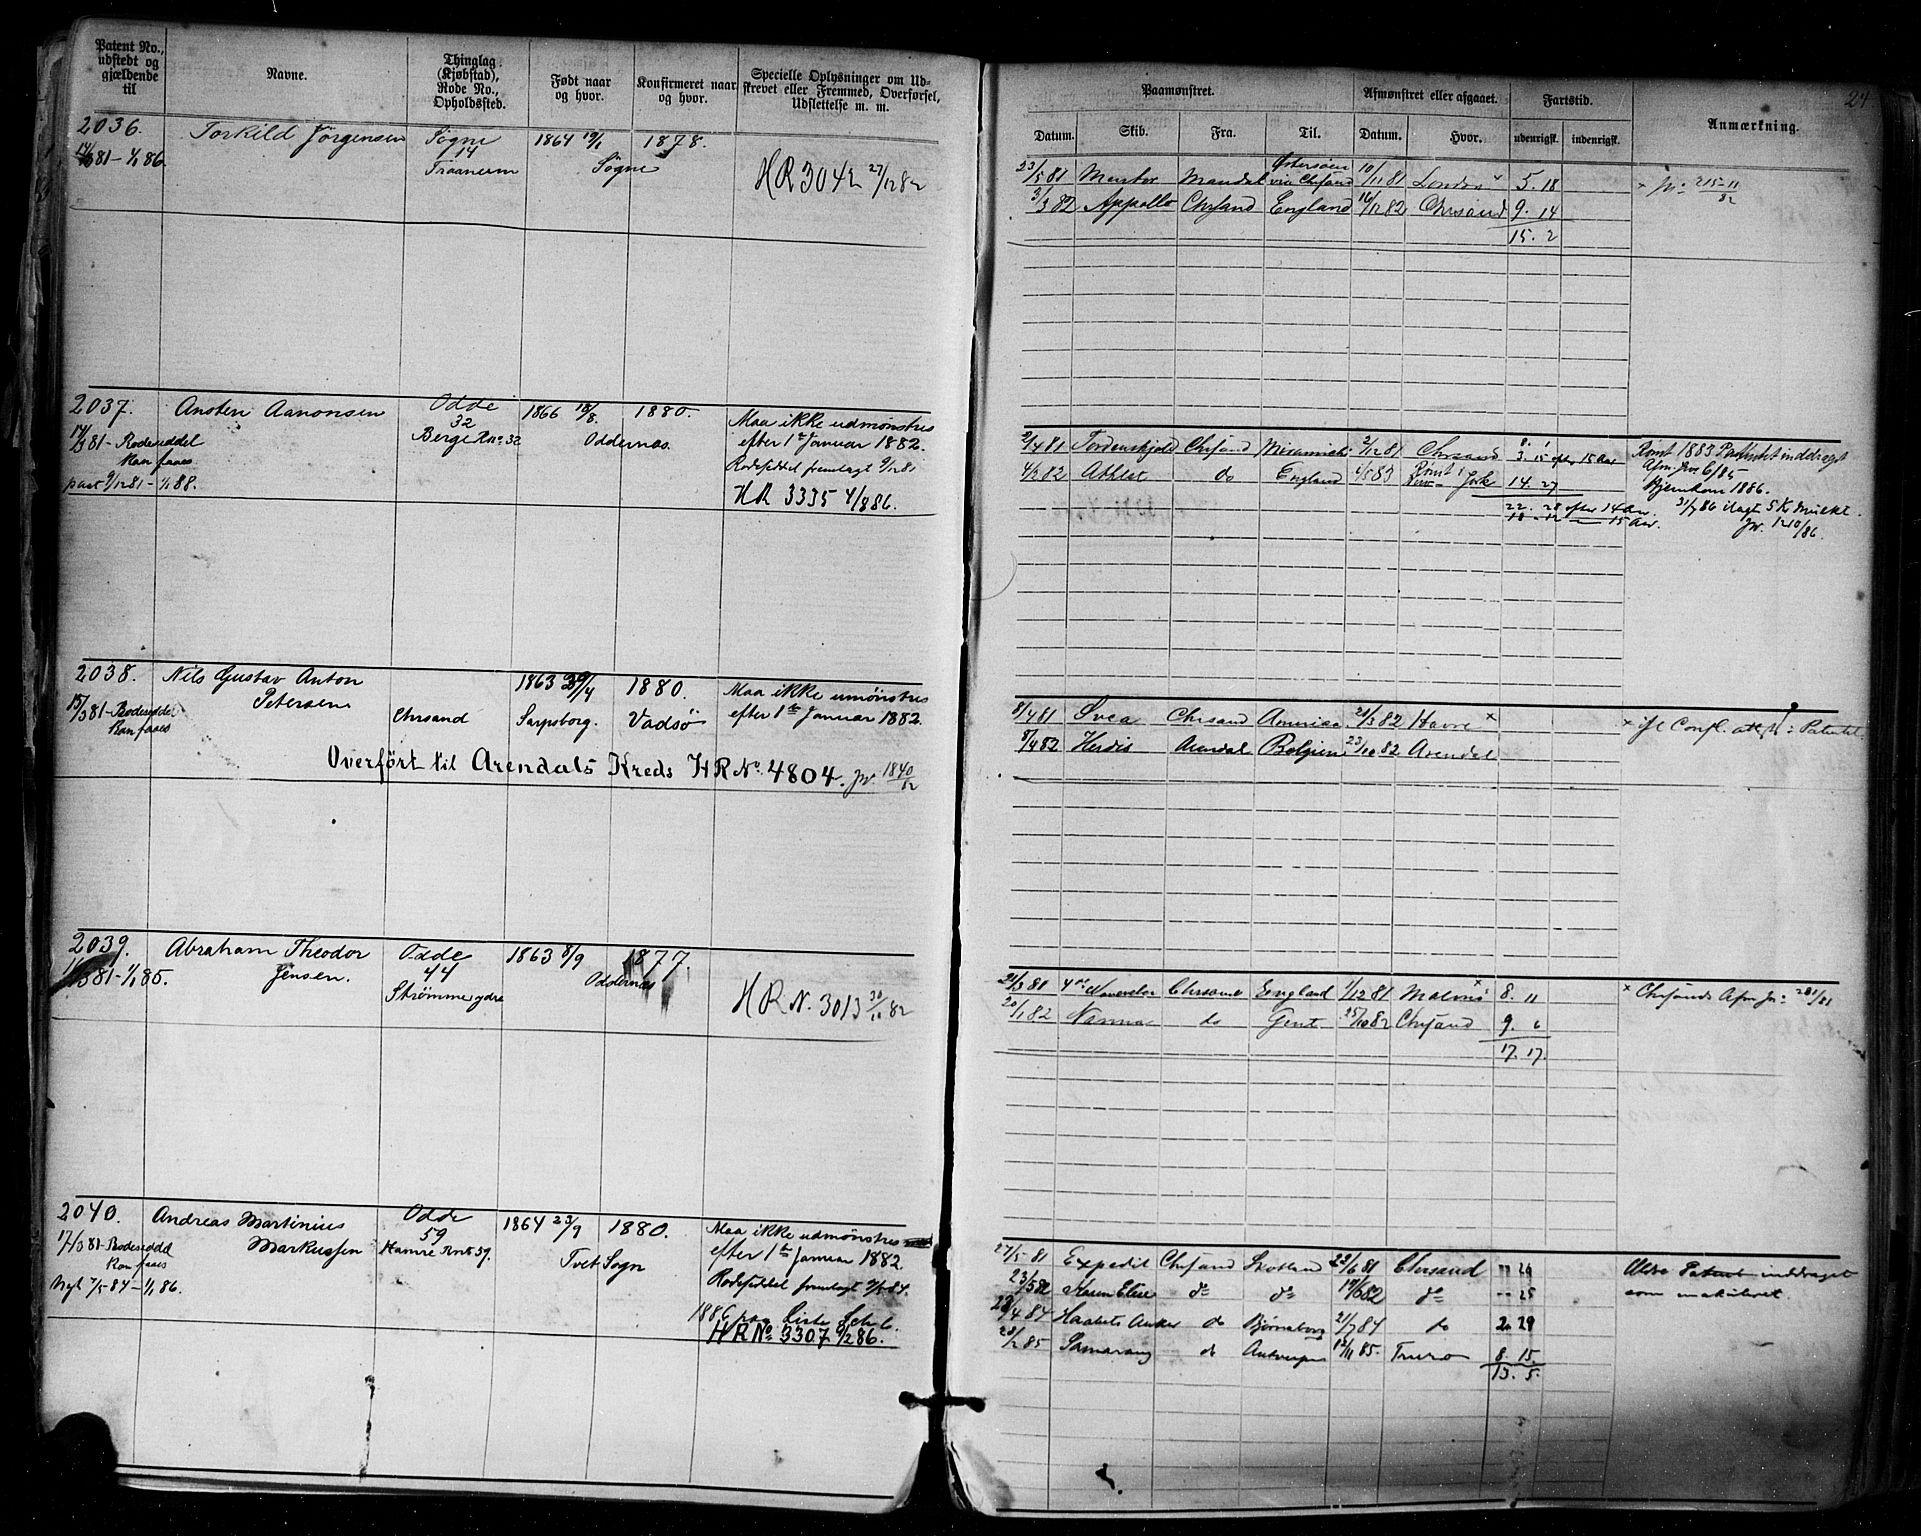 Patent No., udstedt og gjældende til
Navne.
Thinglag (Kjøbstad), Rode No., Opholdssted.
Født naar og hvor.
Konfirmeret naar og hvor.
Specielle Oplysninger om Udskrevet eller Fremmed, Overførsel, Udslettelse m. m.
2036. Torkild Jörgensen Søgne 1864 19/1 1878.
14/3 81 - 1/1 86. 14 Søgne
Traanum HR 3042 27/12 82
2037. Ansten Aanonsen Odde 1866 18/8. 1880. Maa ikke udmønstres
32 efter 1te Januar 1882.
14/3 81 - Rodeseddel Berge Rno 32 Oddernæs.
kan faaes Rodeseddel fremlagt 9/12 81
paat 9/12 81 - 1/1 88. HR 3335 4/8 86.
2038. Nils Gustav Anton 1863 29/4 1880. Maa ikke umønstres
Petersen Chrsand Sarpsborg. Vadsø efter 1te Januar 1882.
15/3 81 - Rodeseddel
kan faaes
Overført til Arendals Kreds HR No. 4804. Jr. 1840/82
2039. Abraham Theodor Odde 1863 8/9 1877.
Jensen. 44 Oddernæs
81 - 1/1 85. Strømme ydre HR N. 3013 30/11 82
2040. Andreas Martinius Odde 1864 23/9 1880. Maa ikke udmønstres
Markussen 59 efter 1te Januar 1882.
17/3 81 - Rodeseddel Hamre Rno 59. Tvet Sogn
kan faaes Rodeseddel fremlagt 7/5 84.
Nyt 7/5 84 - 1/1 86.
1886 paa Liste
HR No. 3307 9/2 86.
24
Paamønstret.
Afmønstret eller afgaaet.
Fartstid.
Anmærkning.
Datum. Skib. Fra. Til. Datum. Hvor. udenrigsk. indenrigsk.
Østersøen
23/5 81 Mentor Mandal via Chrsand 10/11 81 London 5. 18
3/3 82 Appollo Chrsand England 16/12 82 Chrsand 9. 14
15. 2
2/4 81 Tordenskjold Chrsand Miramichi 2/12 81 Chrsand 8. 1
3. 15 efter 15 Aar
4/2 82 Athlet do England 4/5 83 Rømt New-York 14. 27
22. 28 efter 14 Aar.
18 - 12 — 15 Aar.
Rømt 1883 Patentet inddraget
Afm. Jno 6/85
Hjemkom 1886.
31/7 86 ilagt 5 Kr Mulkt.
Jr. 1210/86.
8/4 81 Svea Chrsand Amerika 2/3 82 Havre x
8/4 82 Herdis Arendal Belgien 23/10 82 Arendal
21/3 80 4de November Chrsand England 1/12 81 Malmö x 8. 11
20/1 82 Nanna do Gent 25/10 82 Chrsand 9. 6
17. 17.
27/5 81 Expedit Chrsand Skotland 22/6 81 Chrsand " 26
23/5 82 Karen Elise do do 17/6 82 do " 25
28/4 84 Haabets Anker do Bjørneborg 21/7 84 do 2. 29
20/2 85 Samarang do Antverpen 12/11 85. Truro 8. 15.
13. 5.
Ældre Patent inddraget
som makuleret.